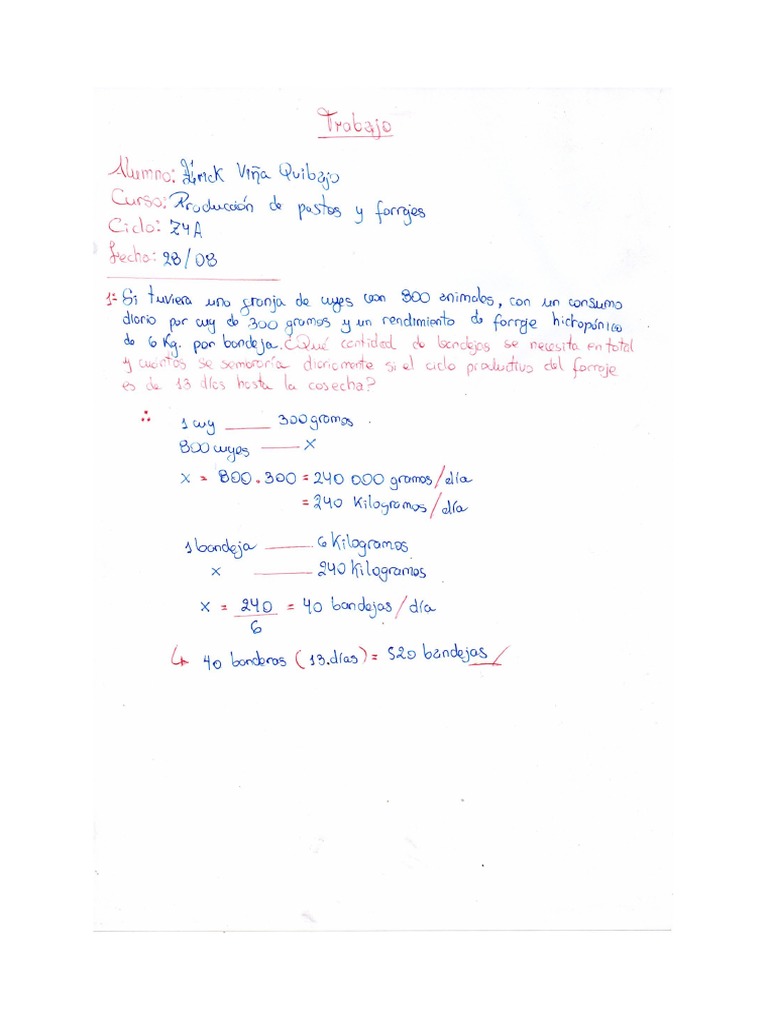 Trabajo
Alumno: Erick Viña Quibajo
Curso: Producción de pastos y forrajes
Ciclo: Z4A
Fecha: 28/08
1= Si tuviera una granja de cuyes con 800 animales, con un consumo
diario por cuy de 300 gramos y un rendimiento de forraje hidropónico
de 6 Kg. por bandeja. ¿Qué cantidad de bandejas se necesita en total
y cuántos se sembraría diariamente si el ciclo productivo del forraje
es de 13 días hasta la cosecha?
∴ 1 cuy ____ 300 gramos.
800 cuyes ____ X
X = 800.300 = 240 000 gramos/día
= 240 Kilogramos/día
1 bandeja ____ 6 Kilogramos
x ____ 240 Kilogramos
X = 240/6 = 40 bandejas/día
↳ 40 banderas (13.días) = 520 bandejas